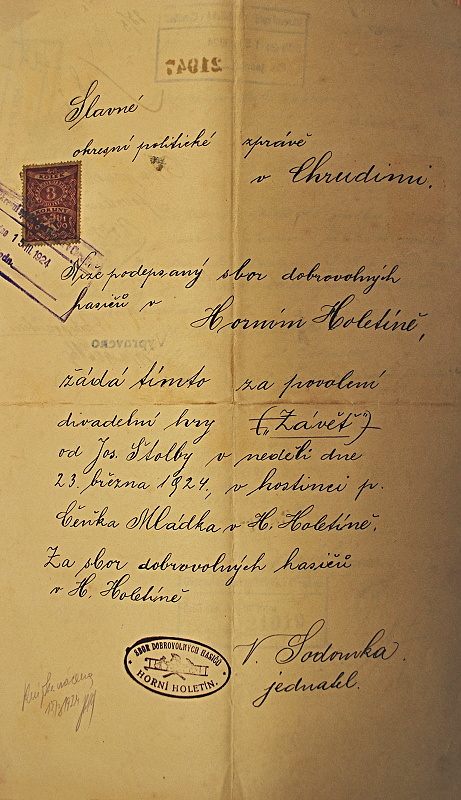 21947
Slavné
okresní politické zprávě
v Chrudimi.
KOLEK
3
KORUNY
1 III 1924
Níže podepsaný sbor dobrovolných
hasičů v
Horním Holetíně,
Vypraveno
žádá tímto za povolení
divadelní hry („Závěť“)
od Jos. Štolby v neděli dne
23. března 1924, v hostinci p.
Čeňka Mládka v H. Holetíně.
Za sbor dobrovolných hasičů
v H. Holetíně
SBOR DOBROVOLNÝCH HASIČŮ
HORNÍ HOLETÍN.
V. Sodomka.
jednatel.